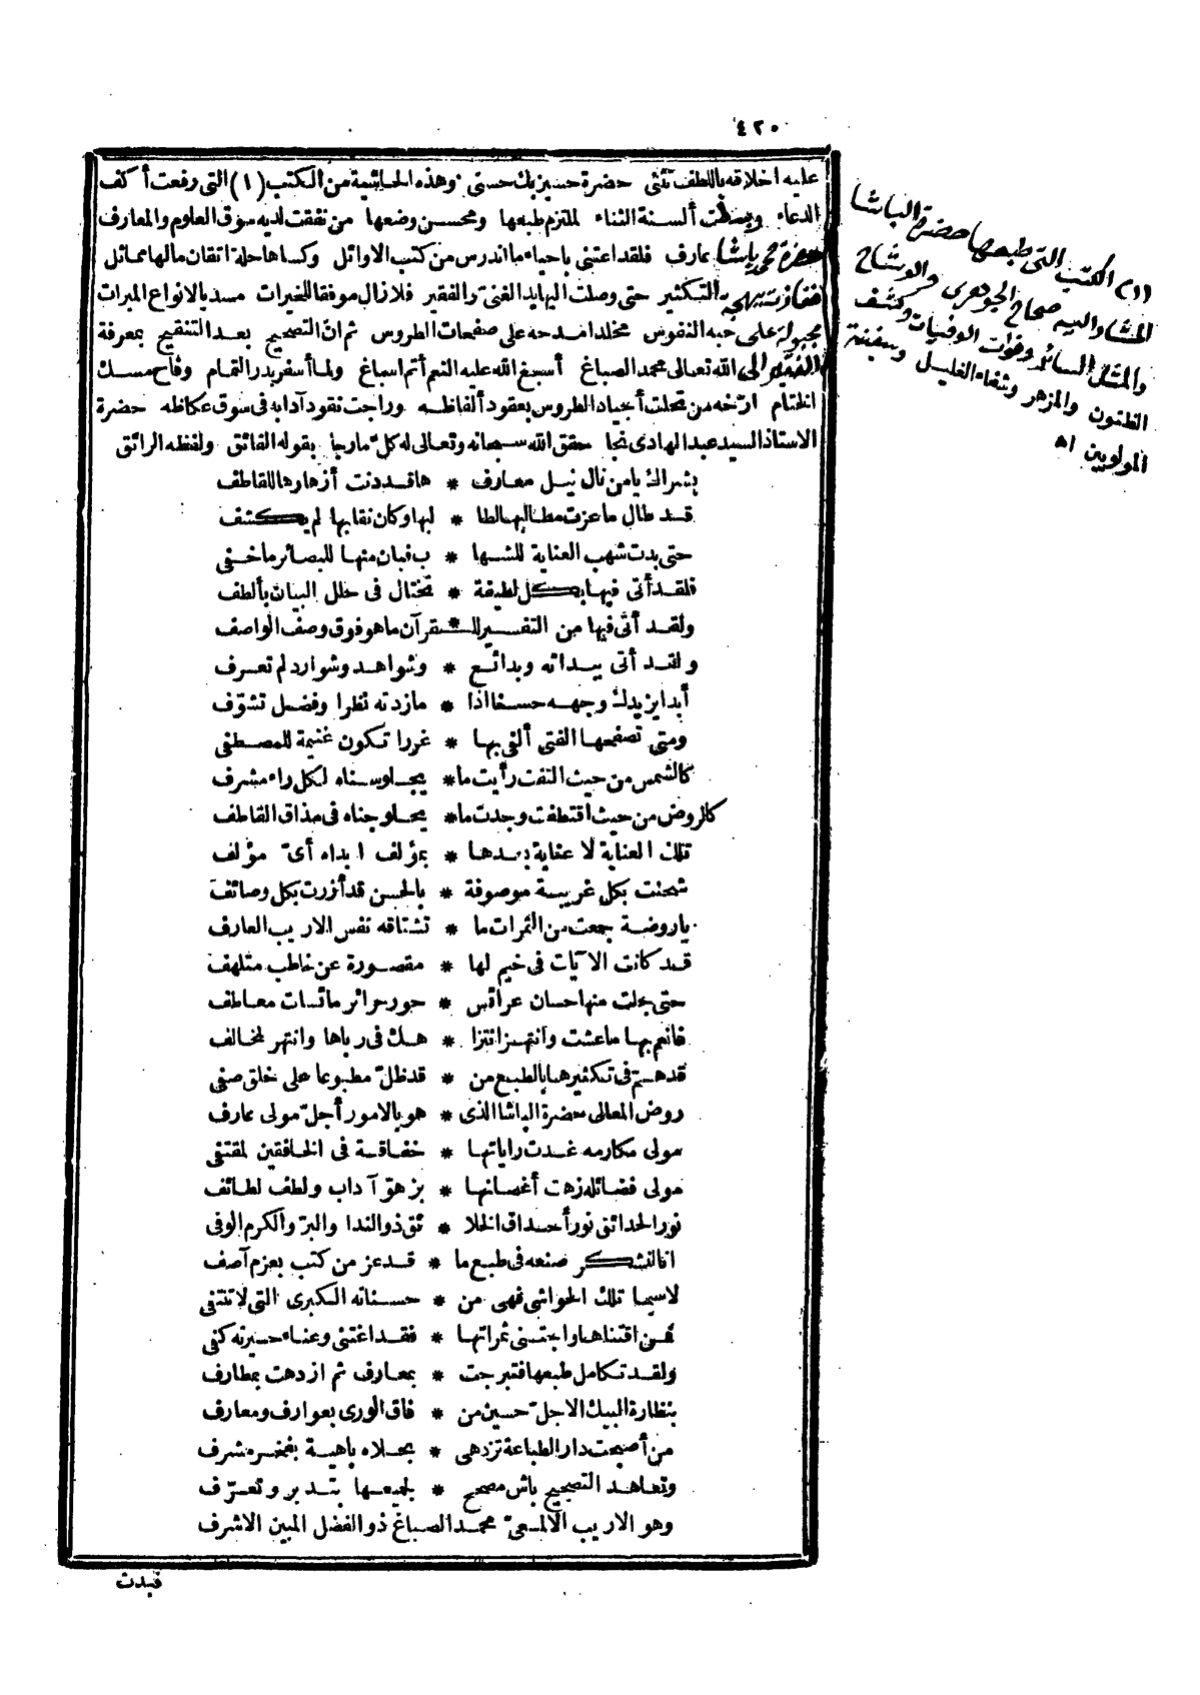 ٤٢٠
عليه اخلاقه باللطف تثنى حضرة حسين بك حسنى وهذه الحاشية من الكتب (١) التى رفعت أكف
الدعاء وبسطت ألسنة الثناء لملتزم طبعها ومحسن وضعها من نفقت لديه سوق العلوم والمعارف
حضرة محمد باشا عارف فلقد اعتنى باحياء ما اندرس من كتب الاوائل وكساها حلة اتقان مالها مماثل
ففازت ببهجة التكثير حتى وصلت اليها يد الغنى والفقير فلا زال موفقا للخيرات مسديا لانواع المبرات
مجبولة على حبه النفوس مخلدا مدحه على صفحات الطروس ثم ان التصحيح بعد التنقيح بمعرفة
الفقير الى الله تعالى محمد الصباغ أسبغ الله عليه النعم أتم اسباغ ولما أسفر بدر التمام وفاح مسك
الختام ارّخه من تحلت أجياد الطروس بعقود ألفاظه وراجت نقود آدابه فى سوق عكاظه حضرة
الاستاذ السيد عبد الهادى نجا حقق الله سبحانه وتعالى له كل ما رجا بقوله الفائق ولفظه الرائق
بشراك يا من نال نيل معارف * ها قد دنت أزهارها للقاطف
قد طال ما عزت مطالبها لطا * لبها وكان نقابها لم يكشف
حتى بدت شهب العناية للشها * ب فبان منها للبصائر ما خفى
فلقد أتى فيها بكل لطيفة * تختال فى حلل البيان بألطف
ولقد أتى فيها من التفسير للـ * ـقرآن ما هو فوق وصف الواصف
ولقد أتى ببدائه وبدائع * وشواهد وشوارد لم تعرف
أبدا يزيدك وجهه حسنا اذا * ما زدته نظرا وفضل تشوّف
ومتى تصفحها الفتى ألفى بها * غررا تكون غنيمة للمصطفى
كالشمس من حيث التفت رأيت ما * يجلو سناه لكل راء مشرف
كالروض من حيث اقتطفت وجدت ما * يحلو جناه فى مذاق القاطف
تلك العناية لا عناية بعدها * بمؤلف ابداه أىّ مؤلف
شحنت بكل غريبة موصوفة * بالحسن قد أزرت بكل وصائف
يا روضة جمعت من الثمرات ما * تشتاقه نفس الاريب العارف
قد كانت الآيات فى خيم لها * مقصورة عن خاطب متلهف
حتى جلت منها حسان عرائس * حور حرائر مائسات معاطف
فانعم بها ما عشت وانتهز انتزا * هك فى رباها وانتهر لمخالف
قد همّ فى تكثيرها بالطبع من * قد ظلّ مطبوعا على خلق صفى
روض المعالى حضرة الباشا الذى * هو بالامور أجلّ مولى عارف
مولى مكارمه غدت راياتها * خفاقة فى الخافقين لمقتفى
مولى فضائله زهت أغصانها * بزهوّ آداب ولطف لطائف
نور الحدائق نور أحداق الخلا * ئق ذو الندا والبرّ والكرم الوفى
انا لنشكر صنعه فى طبع ما * قد عز من كتب بعزم آصف
لاسيما تلك الحواشى فهى من * حسناته الكبرى التى لا تنتفى
فمن اقتناها واجتنى ثمراتها * فقد اغتنى وعناء حيرته كفى
ولقد تكامل طبعها فتبرجت * بمعارف ثم ازدهت بمطارف
بنظارة البيك الاجلّ حسين من * فاق الورى بعوارف ومعارف
من أصبحت دار الطباعة تزدهى * بحلاه باهية بفخر مشرف
وتعاهد التصحيح باش مصحح * لجميعها بتدبر وتعرّف
وهو الاريب الالمعىّ محمد الصباغ ذو الفضل المبين الاشرف
فبدت
(١) الكتب التى طبعها حضرة الباشا
المشار اليه صحاح الجوهرى والوشاح
والمثل السائر وفوات الوفيات وكشف
الظنون والمزهر وشفاء الغليل وسفينة
المولويين اه